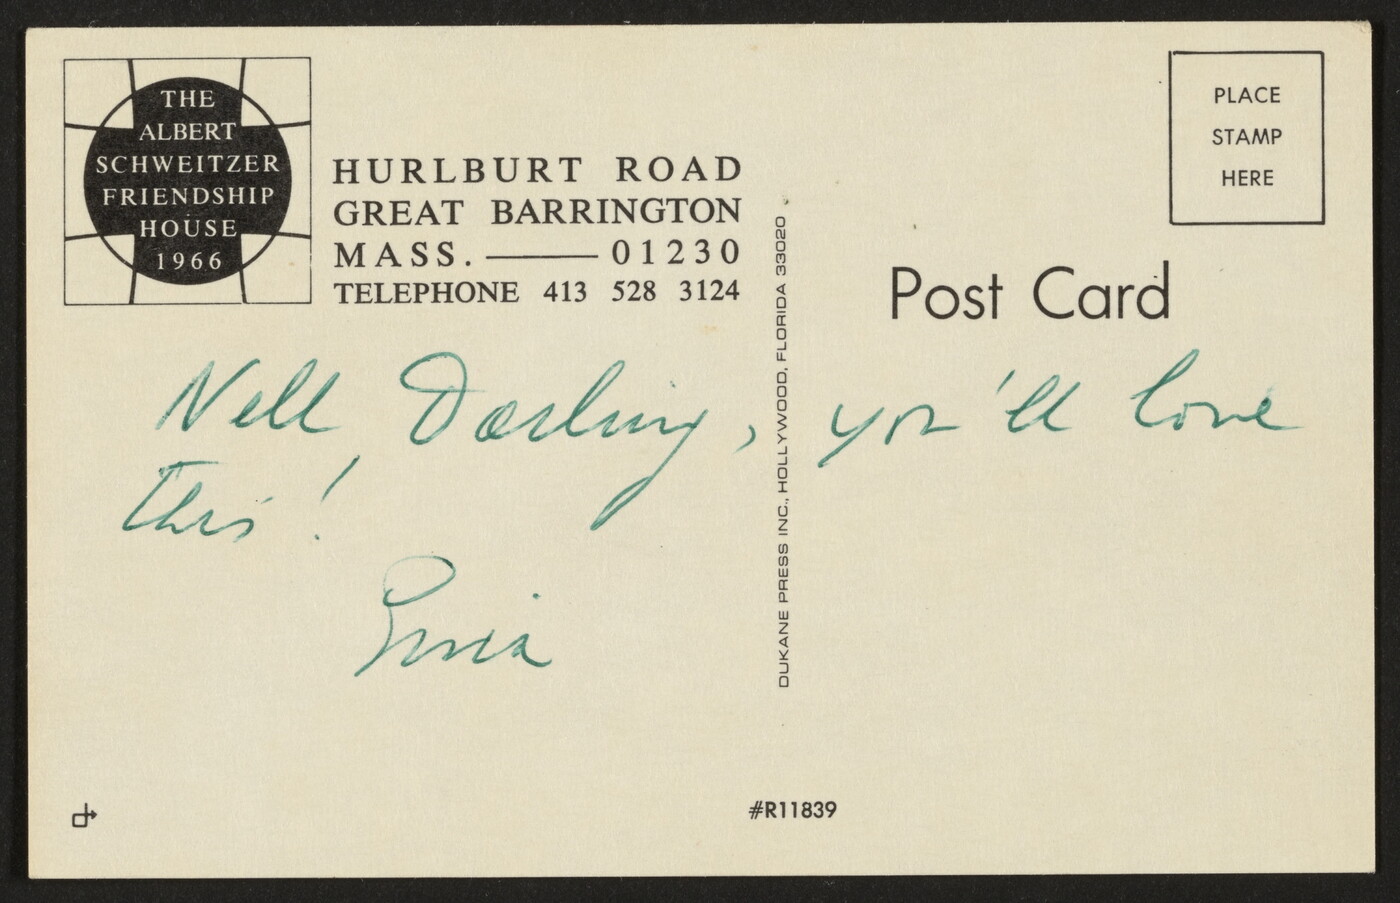 THE
ALBERT
SCHWEITZER
FRIENDSHIP
HOUSE
1966
HURLBURT ROAD
GREAT BARRINGTON
MASS. —— 01230
TELEPHONE 413 528 3124
PLACE
STAMP
HERE
Post Card
DUKANE PRESS INC., HOLLYWOOD, FLORIDA 33020
Nell Darling, you'll love
this!
#R11839